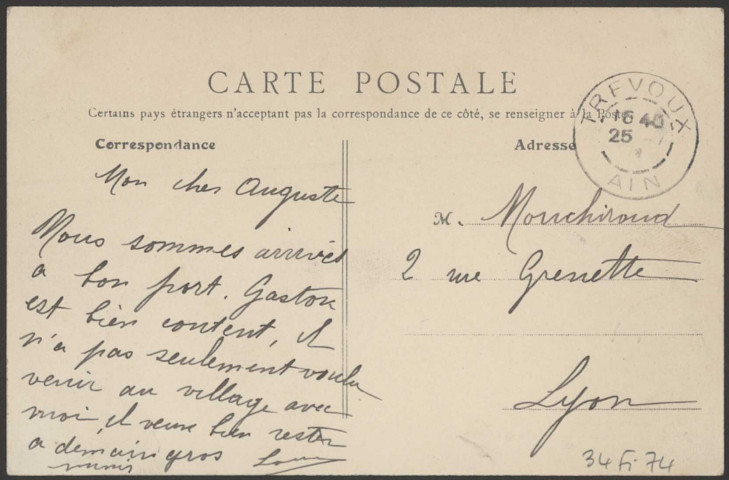 CARTE POSTALE
Certains pays étrangers n'acceptant pas la correspondance de ce côté, se renseigner à la Poste
Correspondance
Mon cher Auguste
Nous sommes arrivés
a bon port. Gaston
est bien content, il
n'a pas seulement voulu
venir au village avec
moi, il veux bien rester
a demain gros
Adresse
TREVOUX
16 45
25
AIN
M. Monchiroud
2 rue Grenette
Lyon
34 Fi 74